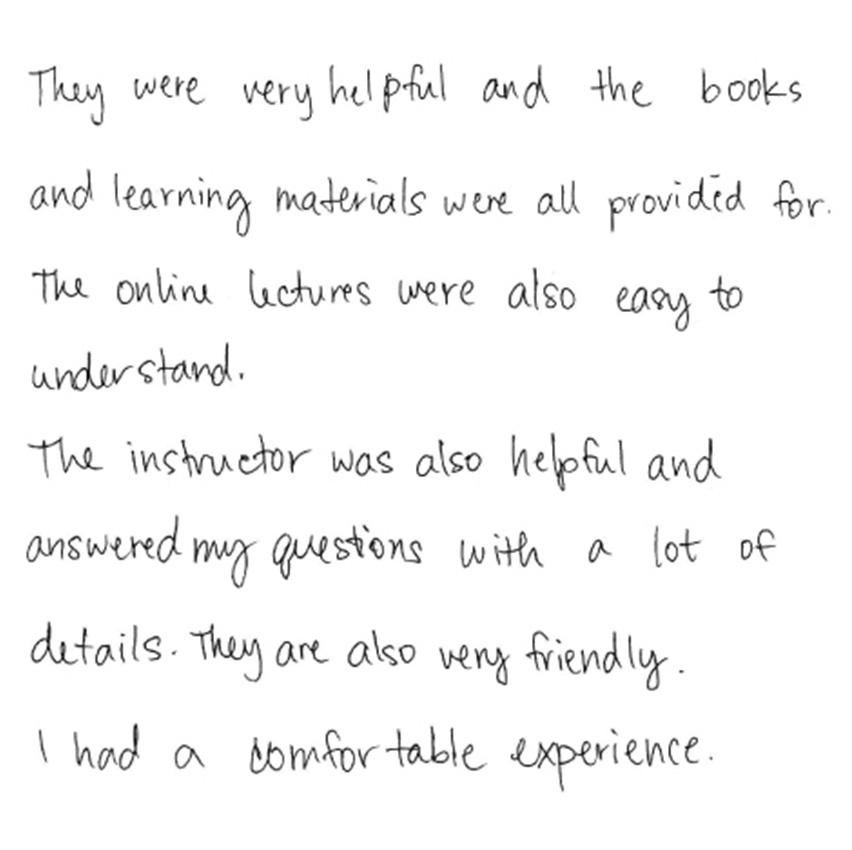 They were very helpful and the books
and learning materials were all provided for.
The online lectures were also easy to
understand.
The instructor was also helpful and
answered my questions with a lot of
details. They are also very friendly.
I had a comfortable experience.